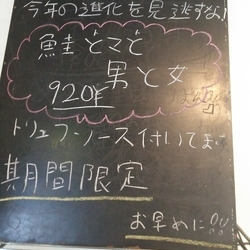 今年の進化を見逃すな!
鮭とマと
男と女
920年
トリュフソース付いてます
期間限定
お早めに!!